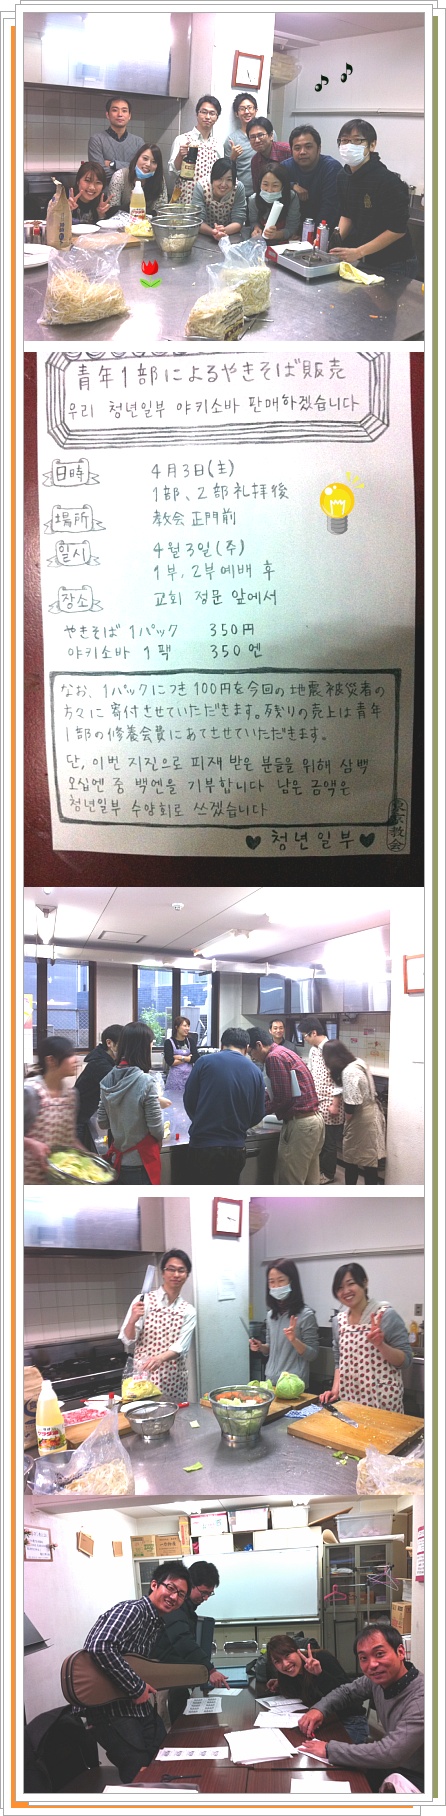 青年1部によるやきそば販売
우리 청년일부 야키소바 판매하겠습니다
日時 4月3日(主)
1部、2部礼拝後
場所 教会正門前
일시 4월3일(주)
1부, 2부예배 후
장소 교회 정문 앞에서
やきそば1パック 350円
야키소바 1팩 350엔
なお、1パックにつき100円を今回の地震被災者の
方々に寄付させていただきます。残りの売上は青年
1部の修養会費にあてさせていただきます。
단, 이번 지진으로 피재 받은 분들을 위해 삼백
오십엔 중 백엔을 기부합니다 남은 금액은
청년일부 수양회로 쓰겠습니다
♥ 청년일부 ♥
東京教会